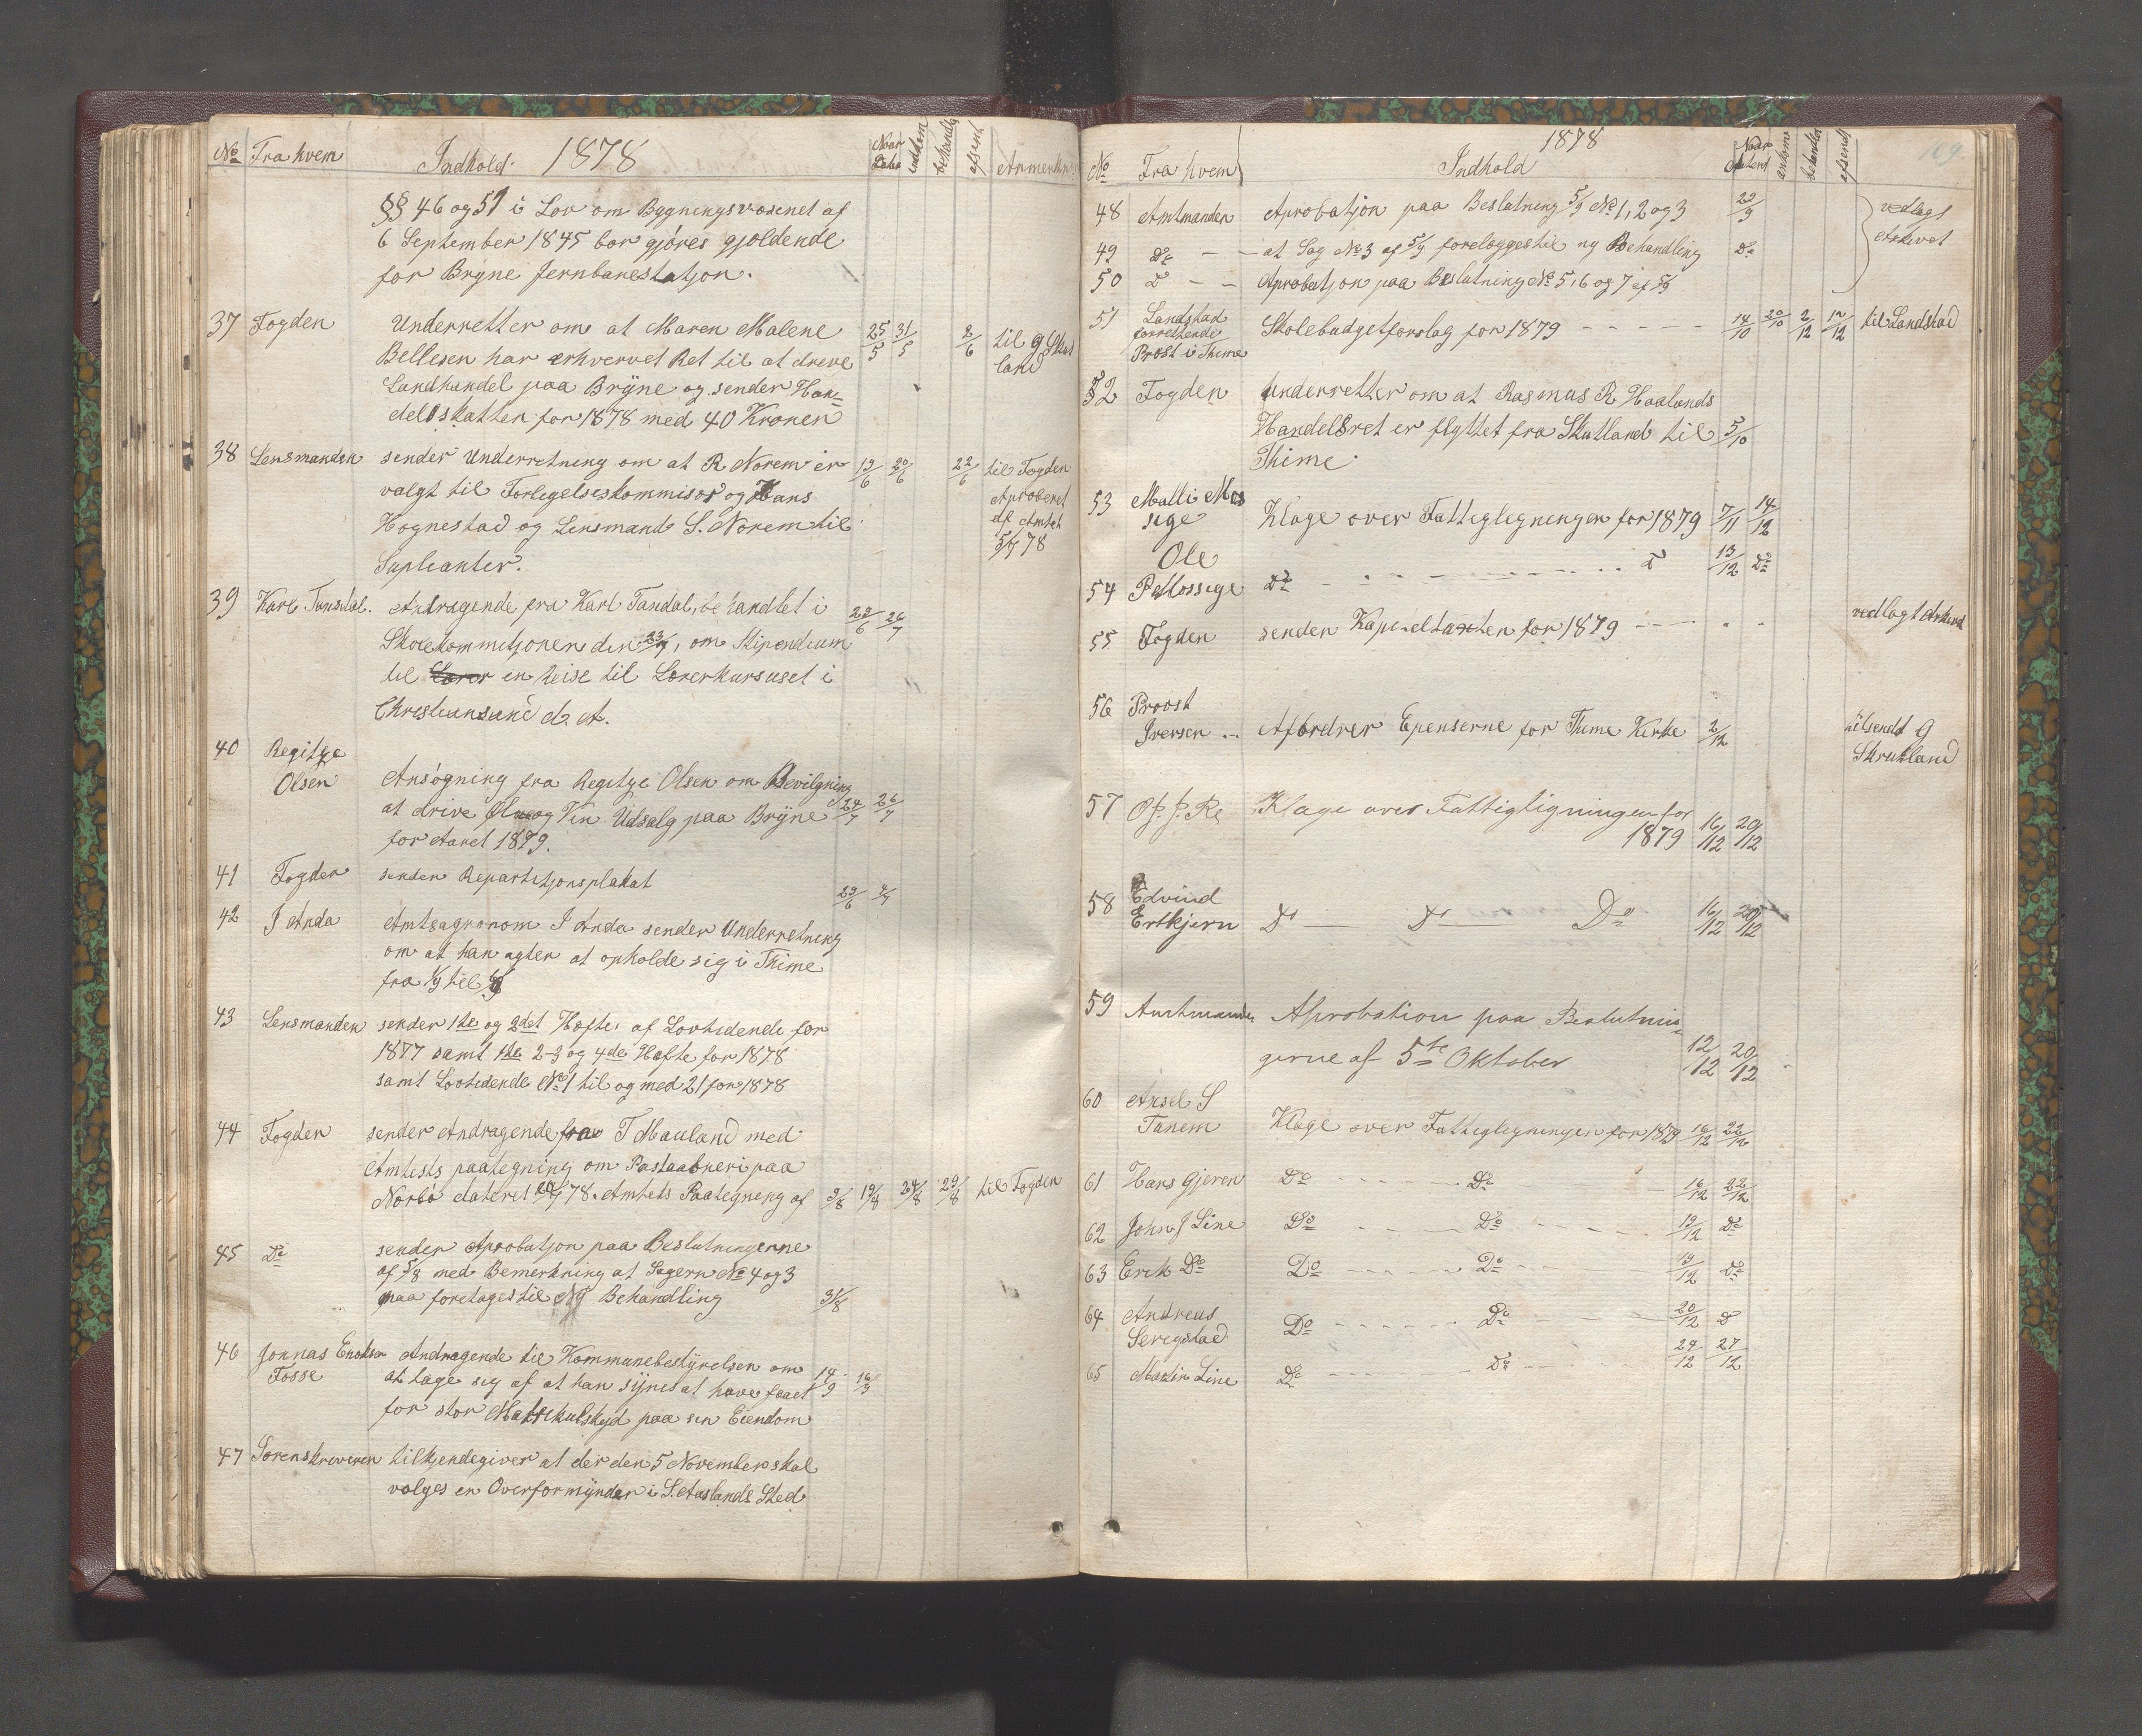 No Fra hvem Indhold. 1878 Naar Dater indkom behandl afsendt Anmerkn
§§ 46 og 51 i Lov om Bygningsvæsenet af
6 September 1845 bør gjøres gjældende
for Bryne Jernbanestatjon.
37 Fogden Underretter om at Maren Malene 25/5 31/5 8/6 til G Skrut
Bellesen har erhvervet Ret til at dreve land
Landhandel paa Brÿne og sender Han=
delsskatten for 1878 med 40 Kroner
38 Lensmanden sender Underretning om at R. Norem er 19/6 20/6 22/6 til Fogden
valgt til Forligelseskommisær og Hans Aproberet
Hognestad og Lensmand S. Norem til af Amtet
Supleanter. 5/7 78
39 Karl Tandal. Andragende fra Karl Tandal, behandlet i 22/6 26/7
Skolekommitjonen den 23/7, om Stipendium
til en Reise til Lærerkursuset i
Christiansand d. A.
40 Regitze
Olsen Ansøgning fra Regitze Olsen om Bevilgning
at drive Øl og Vin Udsalg paa Brÿne 24/7 26/7
for Aaret 1879.
41 Fogden sender Repartitjonsplakat 29/6
42 J Anda Amtsagronom J Anda sender Underretning
om at han agter at opholde sig i Thime
fra 1/9 til
43 Lensmanden sender 1ste og 2det Hefte af Lovtidende for
1877 samt 1ste 2-3 og 4de Hæfte for 1878
samt Lovtidende No 1 til og med 21 for 1878
44 Fogden sender Andragende fra T Mauland med
Amtets paategning om Postaabneri paa
Norbø dateret 78. Amtets Paategning af 9/8 19/8 24/8 29/8 til Fogden
45 Do sender Aprobatjon paa Beslutningerne
af 5/8 med Bemerkning at Sagerne No 4 og 3
maa foretages til Ny Behandling 31/8
46 Jonnas Enoksen Andragende til Kommunebestyrelsen om 14/9 16/9
Fosse at tage sig af at han sÿnes at have faaet
for stor Matrikulskyld paa sin Eiendom
47 Sorenskriveren tilkjendegiver at der den 5 November skal
vælges en Overformÿnder i S. Auslands Sted
1878 169.
No Fra hvem Indhold Naar Daterd ankom behandlet afsendt
48 Amtmanden Aprobatjon paa Beslutning 5/9 No 1, 2 og 3 23/9 vedlagt
49 Do - - at Sag No 3 af 5/9 forelægges til ny Behandling Do Arkivet
50 Do - - Aprobatjon paa Beslutning No 5, 6 og 7 af 5/9
51 Landstad
forrettende Skolebudgetforslag for 1879 - - - - - 14/10 20/10 2/12 12/12 til Landstad
Prost i Thime
52 Fogden Underretter om at Rasmus R. Haalands
Handelsret er flyttet fra Skutland til 5/10
Thime.
53 Malli Mos
sige Klage over Fattiglegningen for 1879 7/11 14/12
Ole
54 P Mossige Do - - - - - - Do 13/12 Do
55 Fogden sender Kapeltaxten for 1879 - - - vedlagt Arkivet
56 Proost
Iversen - Affordrer Expenserne for Thime Kirke 2/12 tilsendt G
Skrutland
57 O J. J. Re Klage over Fattigligningen for
1879 16/12 20/12
58 Edvind
Ertkjern Do — Do — Do 16/12 20/12
59 Amtmanden Aprobation paa Beslutnin
gerne af 5te Oktober 12/12 20/12
60 Aksel S
Tunem Klage over Fattiglegningen for 1879 16/12 22/12
61 Hans Gjeren Do - - - - Do - 16/12 22/12
62 John J Line Do - - - - Do - - - 19/12 Do
63 Erik Do Do - - - - Do - - 19/12 Do
64 Andreas
Serigstad Do - - - - - Do - - - 20/12 Do
65 Martin Line Do - - - - - Do - - 24/12 27/12